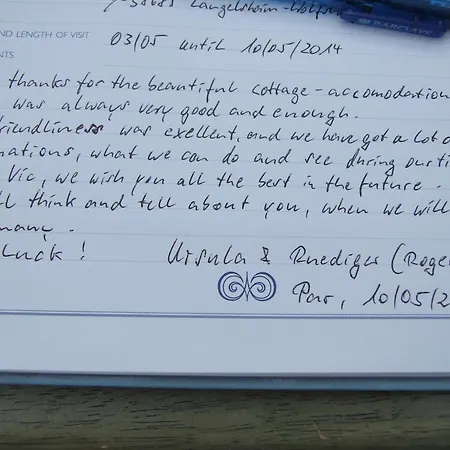 38685 Langelsheim-Wolfs
BARCLAYC
ND LENGTH OF VISIT 03/05 until 10/05/2014
NTS
thanks for the beautiful cottage-accomodation
was always very good and enough.
friendliness was exellent, and we have got a lot o
mations, what we can do and see during our ti
Vic, we wish you all the best in the future.
ll think and tell about you, when we will
many.
Luck! Ursula & Ruediger (Roge
Par, 10/05/2